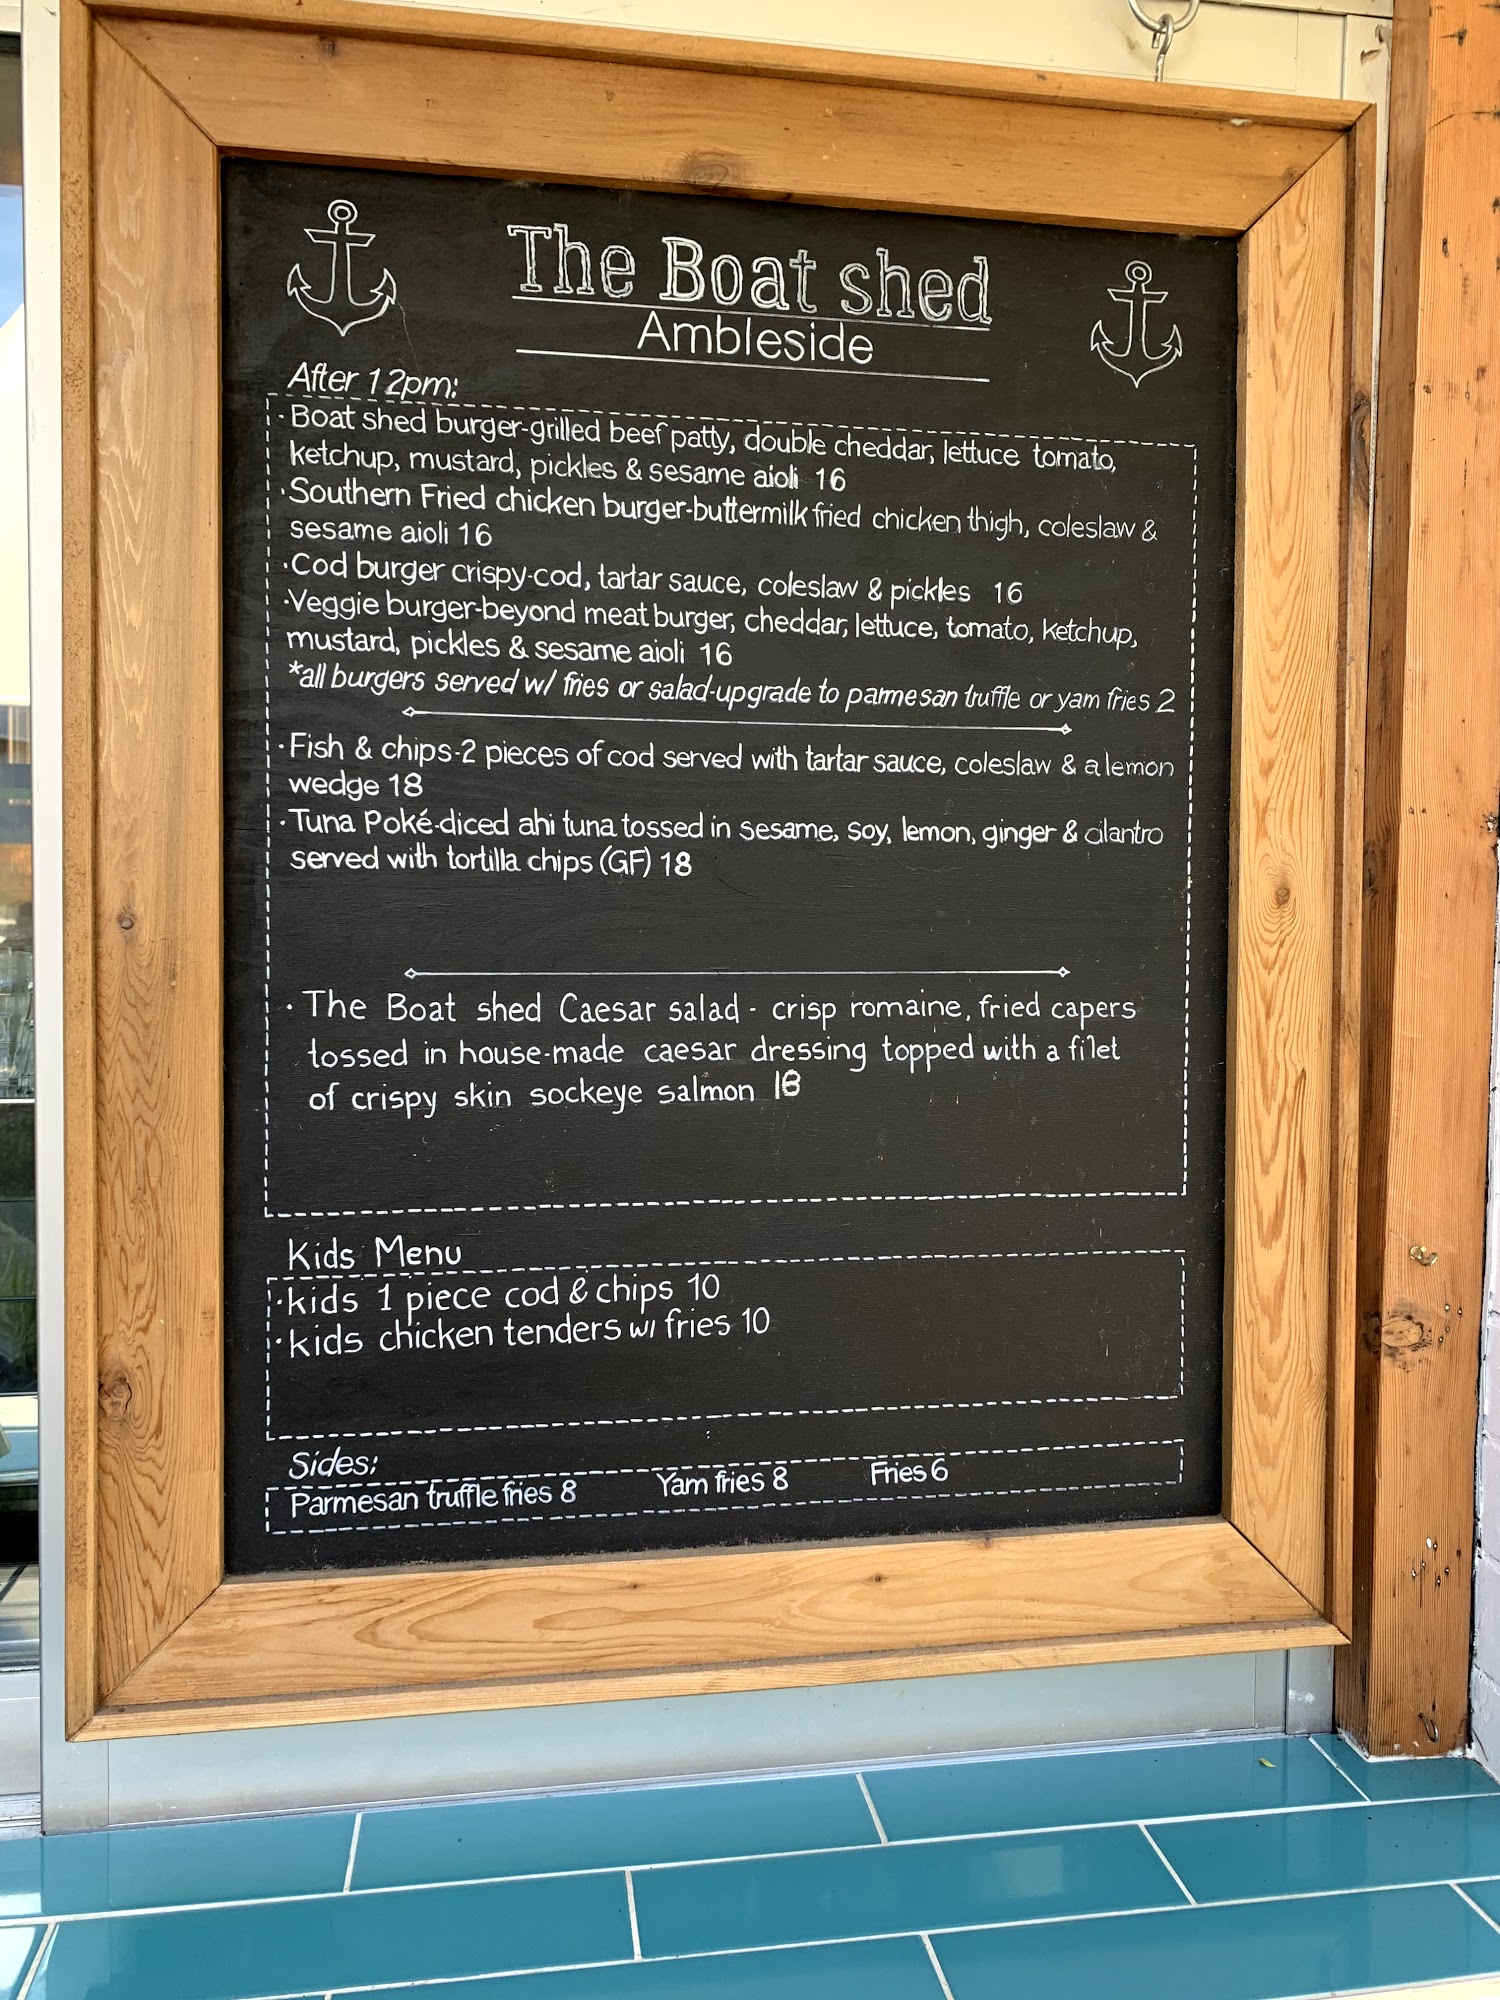 The Boat shed
Ambleside
After 12pm:
· Boat shed burger-grilled beef patty, double cheddar, lettuce tomato,
ketchup, mustard, pickles & sesame aioli 16
· Southern Fried chicken burger-buttermilk fried chicken thigh, coleslaw &
sesame aioli 16
· Cod burger crispy-cod, tartar sauce, coleslaw & pickles 16
· Veggie burger-beyond meat burger, cheddar, lettuce, tomato, ketchup,
mustard, pickles & sesame aioli 16
*all burgers served w/ fries or salad-upgrade to parmesan truffle or yam fries 2
· Fish & chips-2 pieces of cod served with tartar sauce, coleslaw & a lemon
wedge 18
· Tuna Poké-diced ahi tuna tossed in sesame, soy, lemon, ginger & cilantro
served with tortilla chips (GF) 18
· The Boat shed Caesar salad - crisp romaine, fried capers
tossed in house-made caesar dressing topped with a filet
of crispy skin sockeye salmon 18
Kids Menu
· kids 1 piece cod & chips 10
· kids chicken tenders w/ fries 10
Sides:
Parmesan truffle fries 8 Yam fries 8 Fries 6